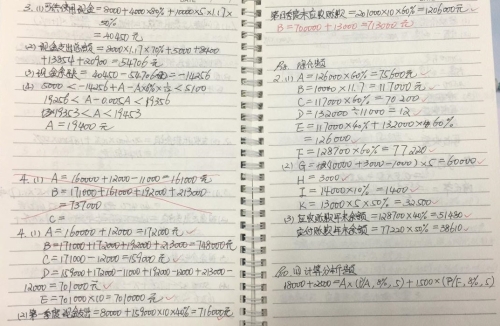 3. (1) 可供使用现金 = 8000+4000×80%+10000×5×1.17×
50%
= 40450元
(2) 现金支出总额 = 8000×1.17×70%+5000+8400
(3) 现金余缺 = 40450-54706 = -14256
(4) 5000 < -14256+A-A× <5100
19256 < A-0.005A < 19356
19353 < A < 19453
A = 19400元
4. (1) A = 160000+12000-11000 = 161000元
B = 171000+161000+192000+213000
= 737000
C =
4. (1) A = 160000+12000 = 172000元
B = 171000+172000+192000+213000 = 748000元
C = 171000-12000 = 159000元
D = 159000+172000-11000+192000-12000+213000-
12000 = 701000元
E = 701000×10 = 7010000元
(2) 第一季度 = 80000+159000×10×40% = 716000元
= 201000×10×60% = 1206000元
B = 700000+13000 = 713000元
综合题
2. (1) A = 126000×60% = 75600元
B = 10000×11.7 = 117000元
C = 117000×60% = 70200
D = 132000÷11000 = 12
E = 117000×40%+132000×60%
= 126000
F = 128700×60% = 77220
(2) G = (10000+3000-1000)×5 = 60000
H = 3000
I = 14000×10% = 1400
K = 13000×5×50% = 32500
(3) 应收账款年末余额 = 128700×40% = 51480
应付账款年末余额 = 77220×50% = 38610
计算分析题
18000+2000 = A×(P/A, 4%, 5)+1500×(P/F, 4%, 5)